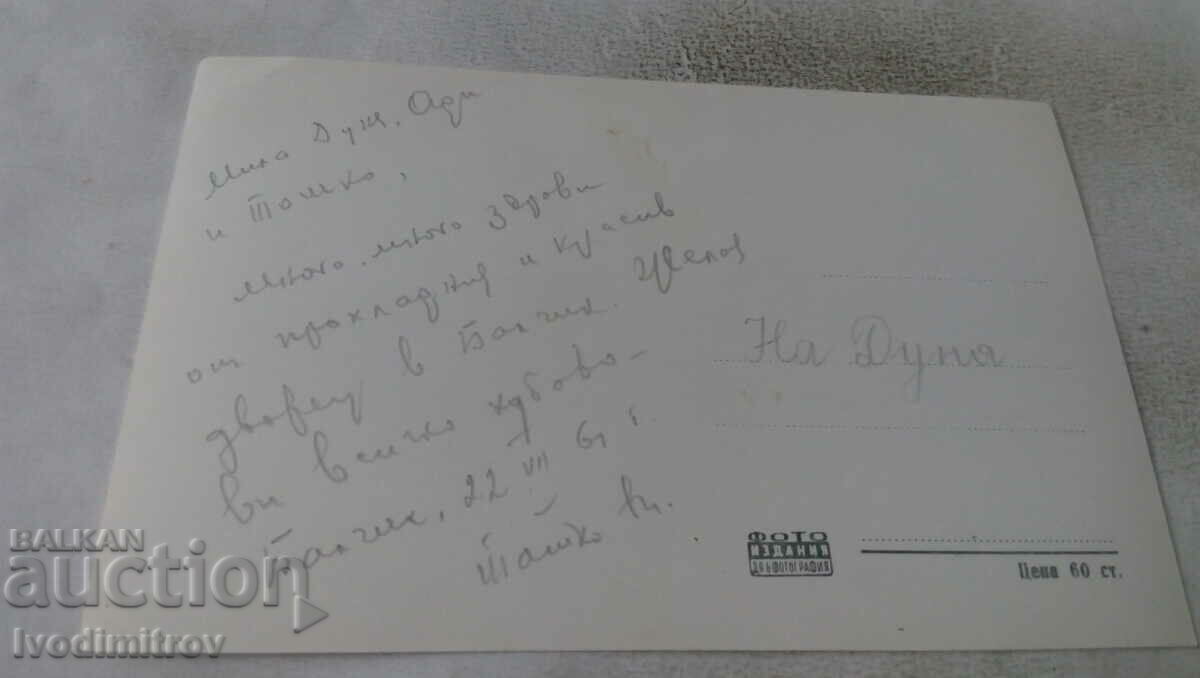 Мила Дуня, Ади
и Тошко,
много, много здрави
от прохладния и красив
дворец в Балчик. Желая
ви всичко хубаво –
Балчик, 22 VII 61 г.
Татко ви.
На Дуня
ФОТО
ИЗДАНИЯ
ДП ФОТОГРАФИЯ
Цена 60 ст.
BALKAN
auction
Ivodimitrov